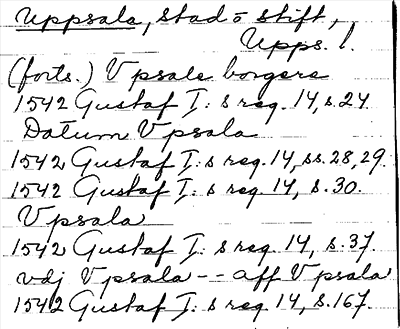 Uppsala, stad o stift,
Upps. l.
(forts.) Vpsale borgere
1542 Gustaf I:s reg. 14, s. 24.
Datum Vpsala
1542 Gustaf I:s reg. 14, ss. 28, 29.
1542 Gustaf I:s reg. 14, s. 30.
Vpsala
1542 Gustaf I:s reg. 14, s. 37.
vdj Vpsala -- aff Vpsala
1542 Gustaf I:s reg. 14, s. 167.